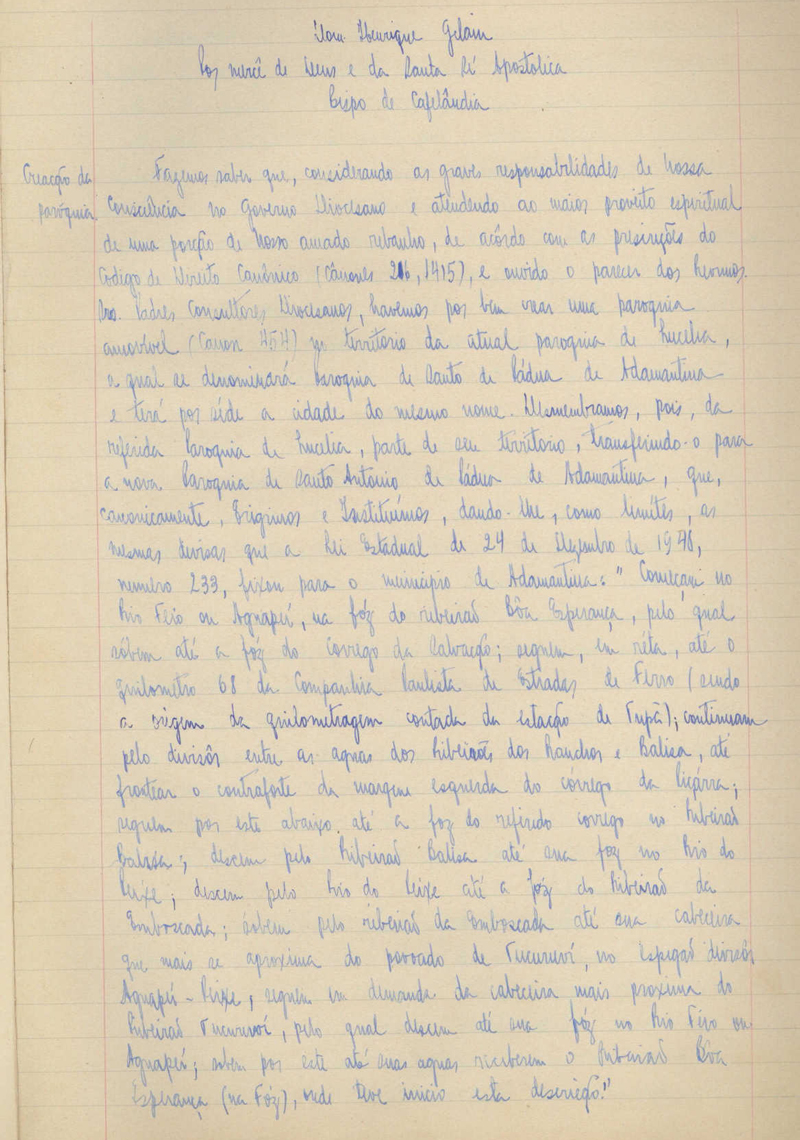 Dom Henrique Gelain
Por mercê de Deus e da Santa Sé Apostolica
Bispo de Cafelândia
Creacção da
paróquia.
Fazemos saber que, considerando as graves responsabilidades de Nossa
Consciência no Governo Diocesano e atendendo ao maior proveito espiritual
de uma porção de Nosso amado rebanho, de acôrdo com as prescrições do
Codigo de Direito Canônico (Cânones 216, 1415), e ouvido o parecer dos Revmos.
Padres Consultores Diocesanos, havemos por bem crear uma paroquia
amovível (Canon 454) no territorio da atual paroquia de Lucelia,
a qual se denominará Paroquia de Santo de Pádua de Adamantina
e terá por séde a cidade do mesmo nome. Desmembramos, pois, da
referida Paroquia de Lucelia, parte de seu territorio, transferindo-o para
a nova Paroquia de Santo Antonio de Pádua de Adamantina, que,
canonicamente, Erigimos e Instituímos, dando-lhe, como limites, as
mesmas divisas que a Lei Estadual de 24 de Dezembro de 1948,
numero 233, fixou para o município de Adamantina: "Começam no
Rio Feio ou Aguapeí, na fóz do ribeirão Bôa Esperança, pelo qual
sóbem até a foz do corrego da Salvação; seguem, em réta, até o
quilometro 68 da Companhia Paulista de Estradas de Ferro (sendo
a origem da quilometragem contada da estação de Tupã); continuam
pelo divisôr entre as aguas dos Ribeirões dos Ranchos e Balisa, até
frontear o contraforte da margem esquerda do córrego da Piçarra;
seguem por este abaixo, até a foz do referido corrego no Ribeirão
Balisa; descem pelo Ribeirão Balisa até sua foz no Rio do
Peixe; descem pelo Rio do Peixe até a fóz do Ribeirão da
Emboscada; sobem pelo ribeirão da Emboscada até sua cabeceira
que mais se aproxima do povoado de Tucuruví, no Espigão divisôr
Aguapeí-Peixe, seguem em demanda da cabeceira mais proxima do
Ribeirão Tucuruví, pelo qual descem até sua fóz no Rio Feio ou
Aguapeí; sobem por este até suas aguas receberem o Ribeirão Bôa
Esperança (na Fóz), onde teve inicio esta descrição."